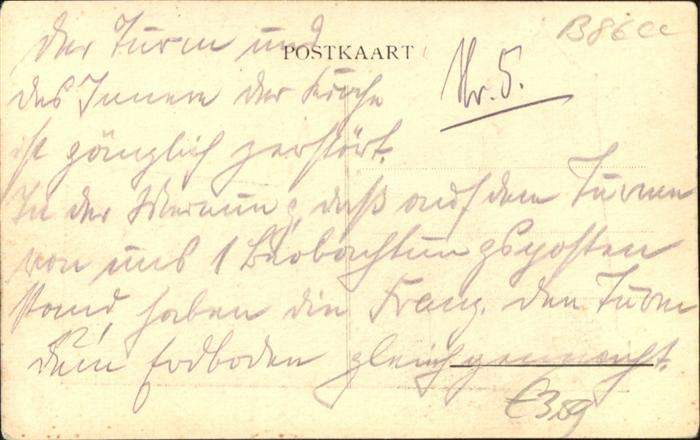 B86cc
Der Turm und
POSTKAART
Nr. 5.
das Innere der Kirche
ist gänzlich zerstört.
In der Meinung, daß auf dem Turme
von uns 1 Beobachtungsposten
stand, haben die Franz. den Turm
dem Erdboden gleichgemacht.
€3,50